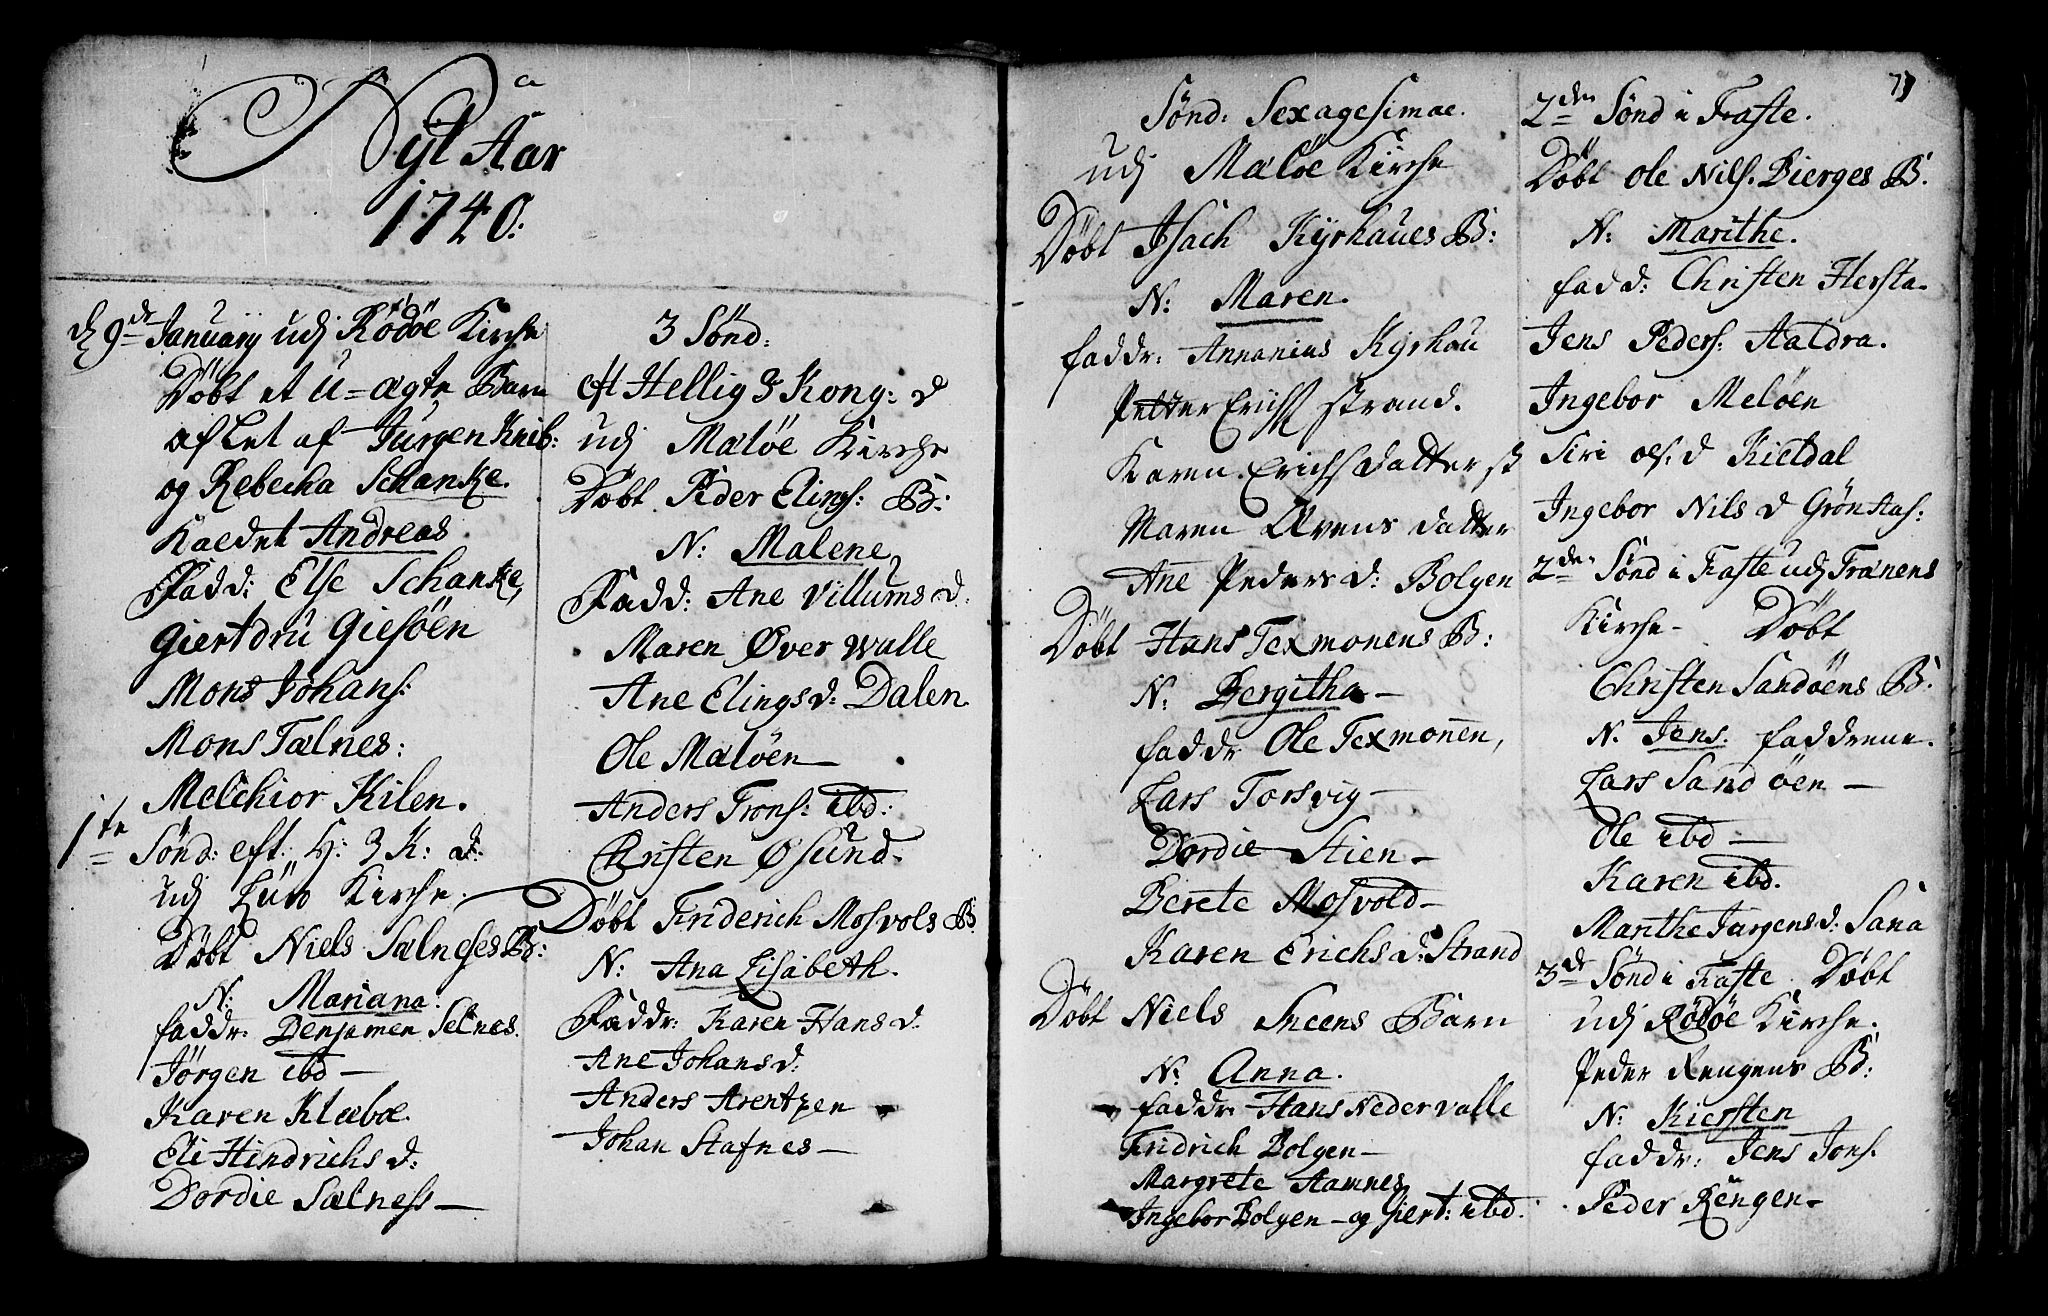 Nyt Aar
1740.
d 9de January udj Rödöe Kirche
Döbt et u=ægte Barn
aflet af Jürgen Knib:
og Rebecka Schanke.
Kaedet Andreas
Fadd: Else Schanke,
Giertdru Giesöen
Mons Johans:
Mons Talnes:
Melchior Kilen.
1te Sönd: eft: H: 3 K: d:
udj Lurö Kirche.
Döbt Niels Sælneses B:
N: Mariana.
faddr: Benjamen Selnes.
Jörgen ibd –
Karen Klæboe.
Eli Hindrichs d:
Dordie Sælness –
3 Sönd:
Eft Hellig 3 Kong: d
udj Maløe Kirche
Döbt Peder Elings: B:
N: Malene
Fadd: Ane Villums d.
Maren Øver Walle
Ane Elings d: Dalen
Ole Maløen –
Anders Trons: ibd:
Christen Øsund.
Döbt Friderich Mosvols B
N: Ana Lisabeth.
Faddr: Karen Hans d.
Ane Johans d:
Anders Arentzen
Johan Stafnes –
Sönd: Sexagesimae.
udj Maløe Kirche
Döbt Isach Kyrhaues B:
N: Maren.
faddr: Annanius Kyrhau
Petter Erichs strand.
Karen Erichs datter st
Maren Arens datter
Ane Peders d: Bolgen
Döbt Hans Texmonens B:
N: Bergitha –
faddr Ole Texmonen,
Lars Torsvig –
Dordie Stien –
Berete Mosvold –
Karen Erichs d: Strand
Döbt Niels Sneens Barn
N: Anna.
faddr Hans Nedervalle
Fridrich Bolgen –
Margrete Stamnes
Ingebor Bolgen – og Giert: ibd.
79
2den Sönd i Faste.
Döbt Ole Nils. Bierges B.
N: Marithe.
fadd: Christen Hersta.
Jens Peders: Aaldra.
Ingebor Meløen
Siri ols: d Kieldal
Ingebor Nils d Grönstas:
2den Sönd i Faste udj Trænens
Kirche – Döbt
Christen Sandöens B:
N. Jens. faddrene.
Lars Sandöen –
Ole ibd –
Karen ibd.
Marithe Jurgens d: Sana
3de Sönd i Faste Döbt
udj Rödöe Kirche.
Peder Rengens B:
N: Kiersten
faddr: Jens Jons.
Peder Rengen –